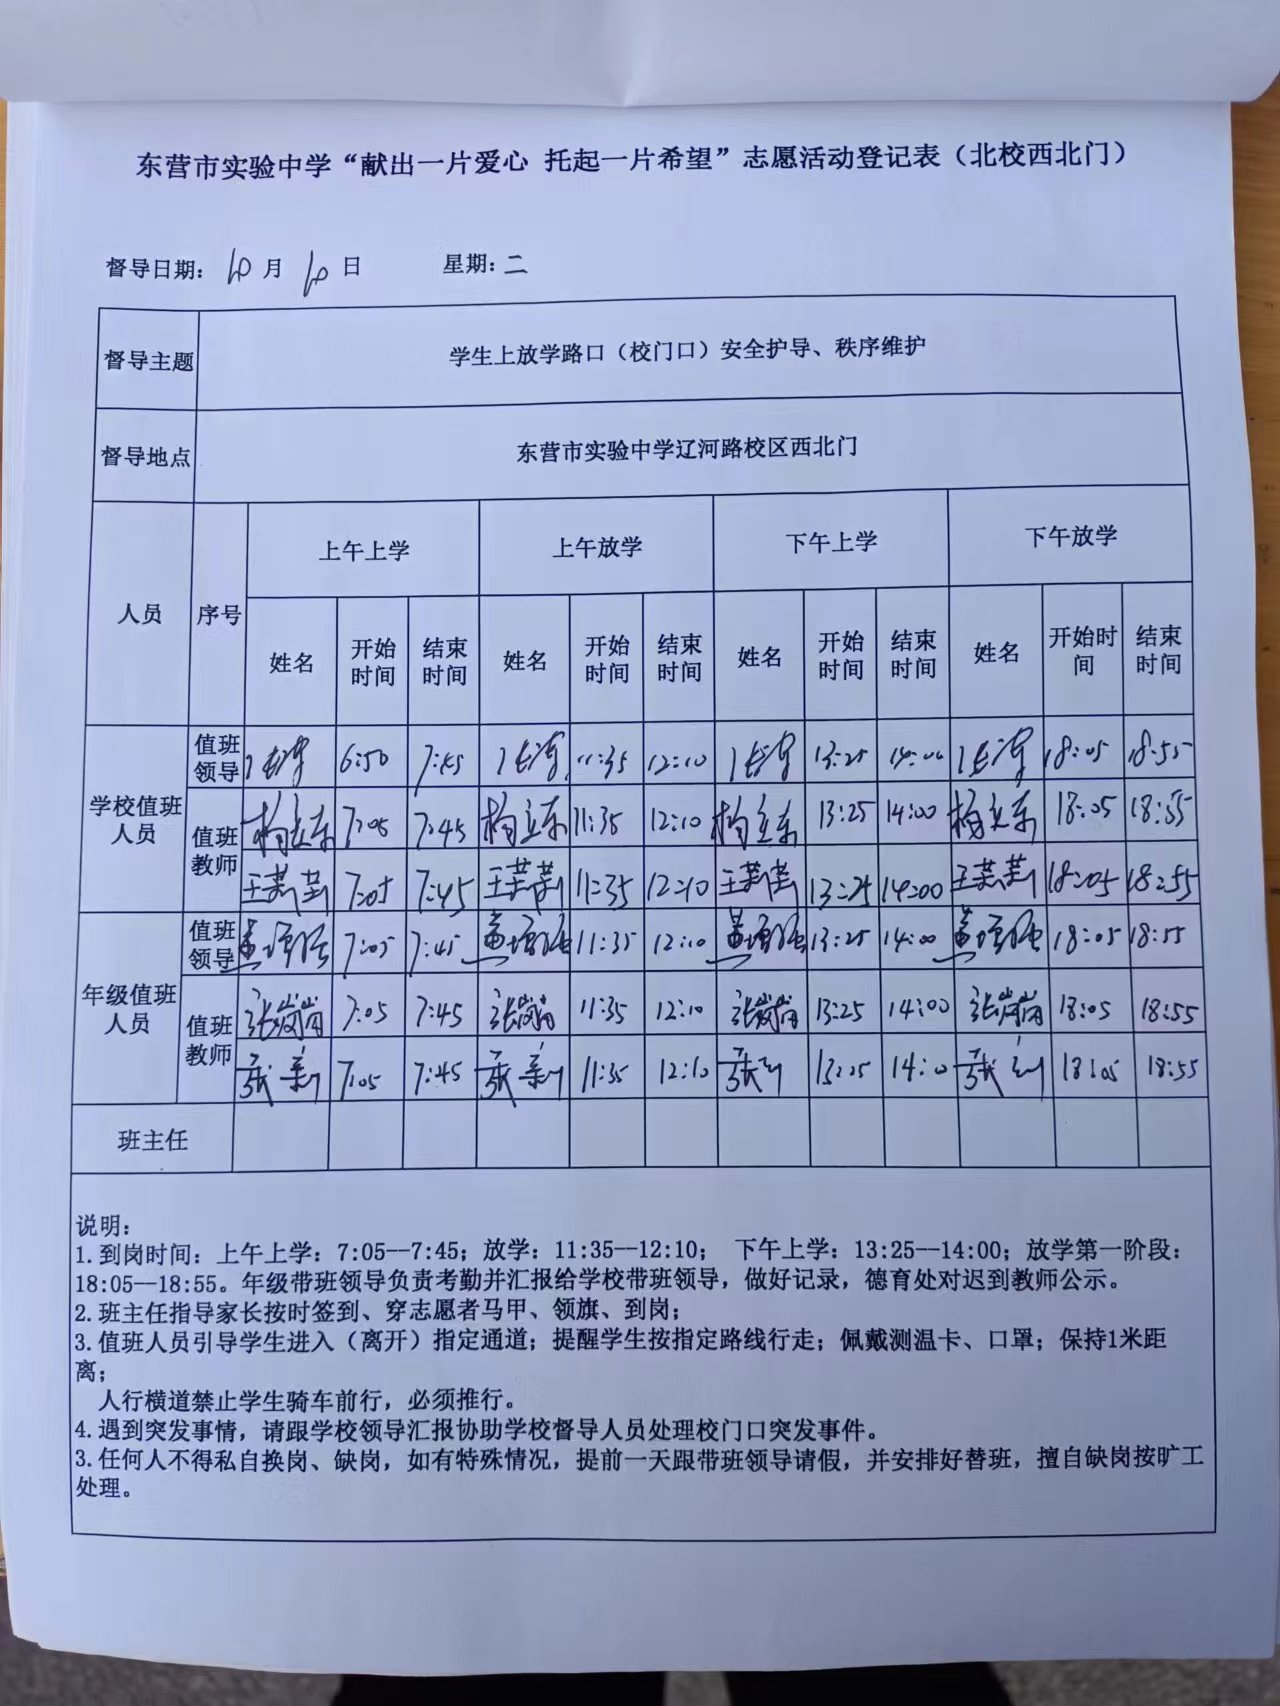 东营市实验中学“献出一片爱心 托起一片希望”志愿活动登记表（北校西北门）
督导日期：10月10日 星期：二
督导主题 学生上放学路口（校门口）安全护导、秩序维护
督导地点 东营市实验中学辽河路校区西北门
人员 序号 上午上学 上午放学 下午上学 下午放学
姓名 开始时间 结束时间 姓名 开始时间 结束时间 姓名 开始时间 结束时间 姓名 开始时间 结束时间
学校值班人员 值班领导 6:50 7:45 11:35 12:10 13:25 14:00 18:05 18:55
值班教师 杨立东 7:05 7:45 杨立东 11:35 12:10 杨立东 13:25 14:00 杨立东 18:05 18:55
7:05 7:45 11:35 12:10 13:25 14:00 18:05 18:55
年级值班人员 值班领导 盖增强 7:05 7:45 盖增强 11:35 12:10 盖增强 13:25 14:00 盖增强 18:05 18:55
值班教师 7:05 7:45 11:35 12:10 13:25 14:00 18:05 18:55
7:05 7:45 11:35 12:10 13:25 14:0 18:05 18:55
班主任
说明：
1.到岗时间：上午上学：7:05--7:45；放学：11:35--12:10； 下午上学：13:25--14:00；放学第一阶段：
18:05--18:55。年级带班领导负责考勤并汇报给学校带班领导，做好记录，德育处对迟到教师公示。
2.班主任指导家长按时签到、穿志愿者马甲、领旗、到岗；
3.值班人员引导学生进入（离开）指定通道；提醒学生按指定路线行走；佩戴测温卡、口罩；保持1米距
离；
人行横道禁止学生骑车前行，必须推行。
4.遇到突发事情，请跟学校领导汇报协助学校督导人员处理校门口突发事件。
3.任何人不得私自换岗、缺岗，如有特殊情况，提前一天跟带班领导请假，并安排好替班，擅自缺岗按旷工
处理。